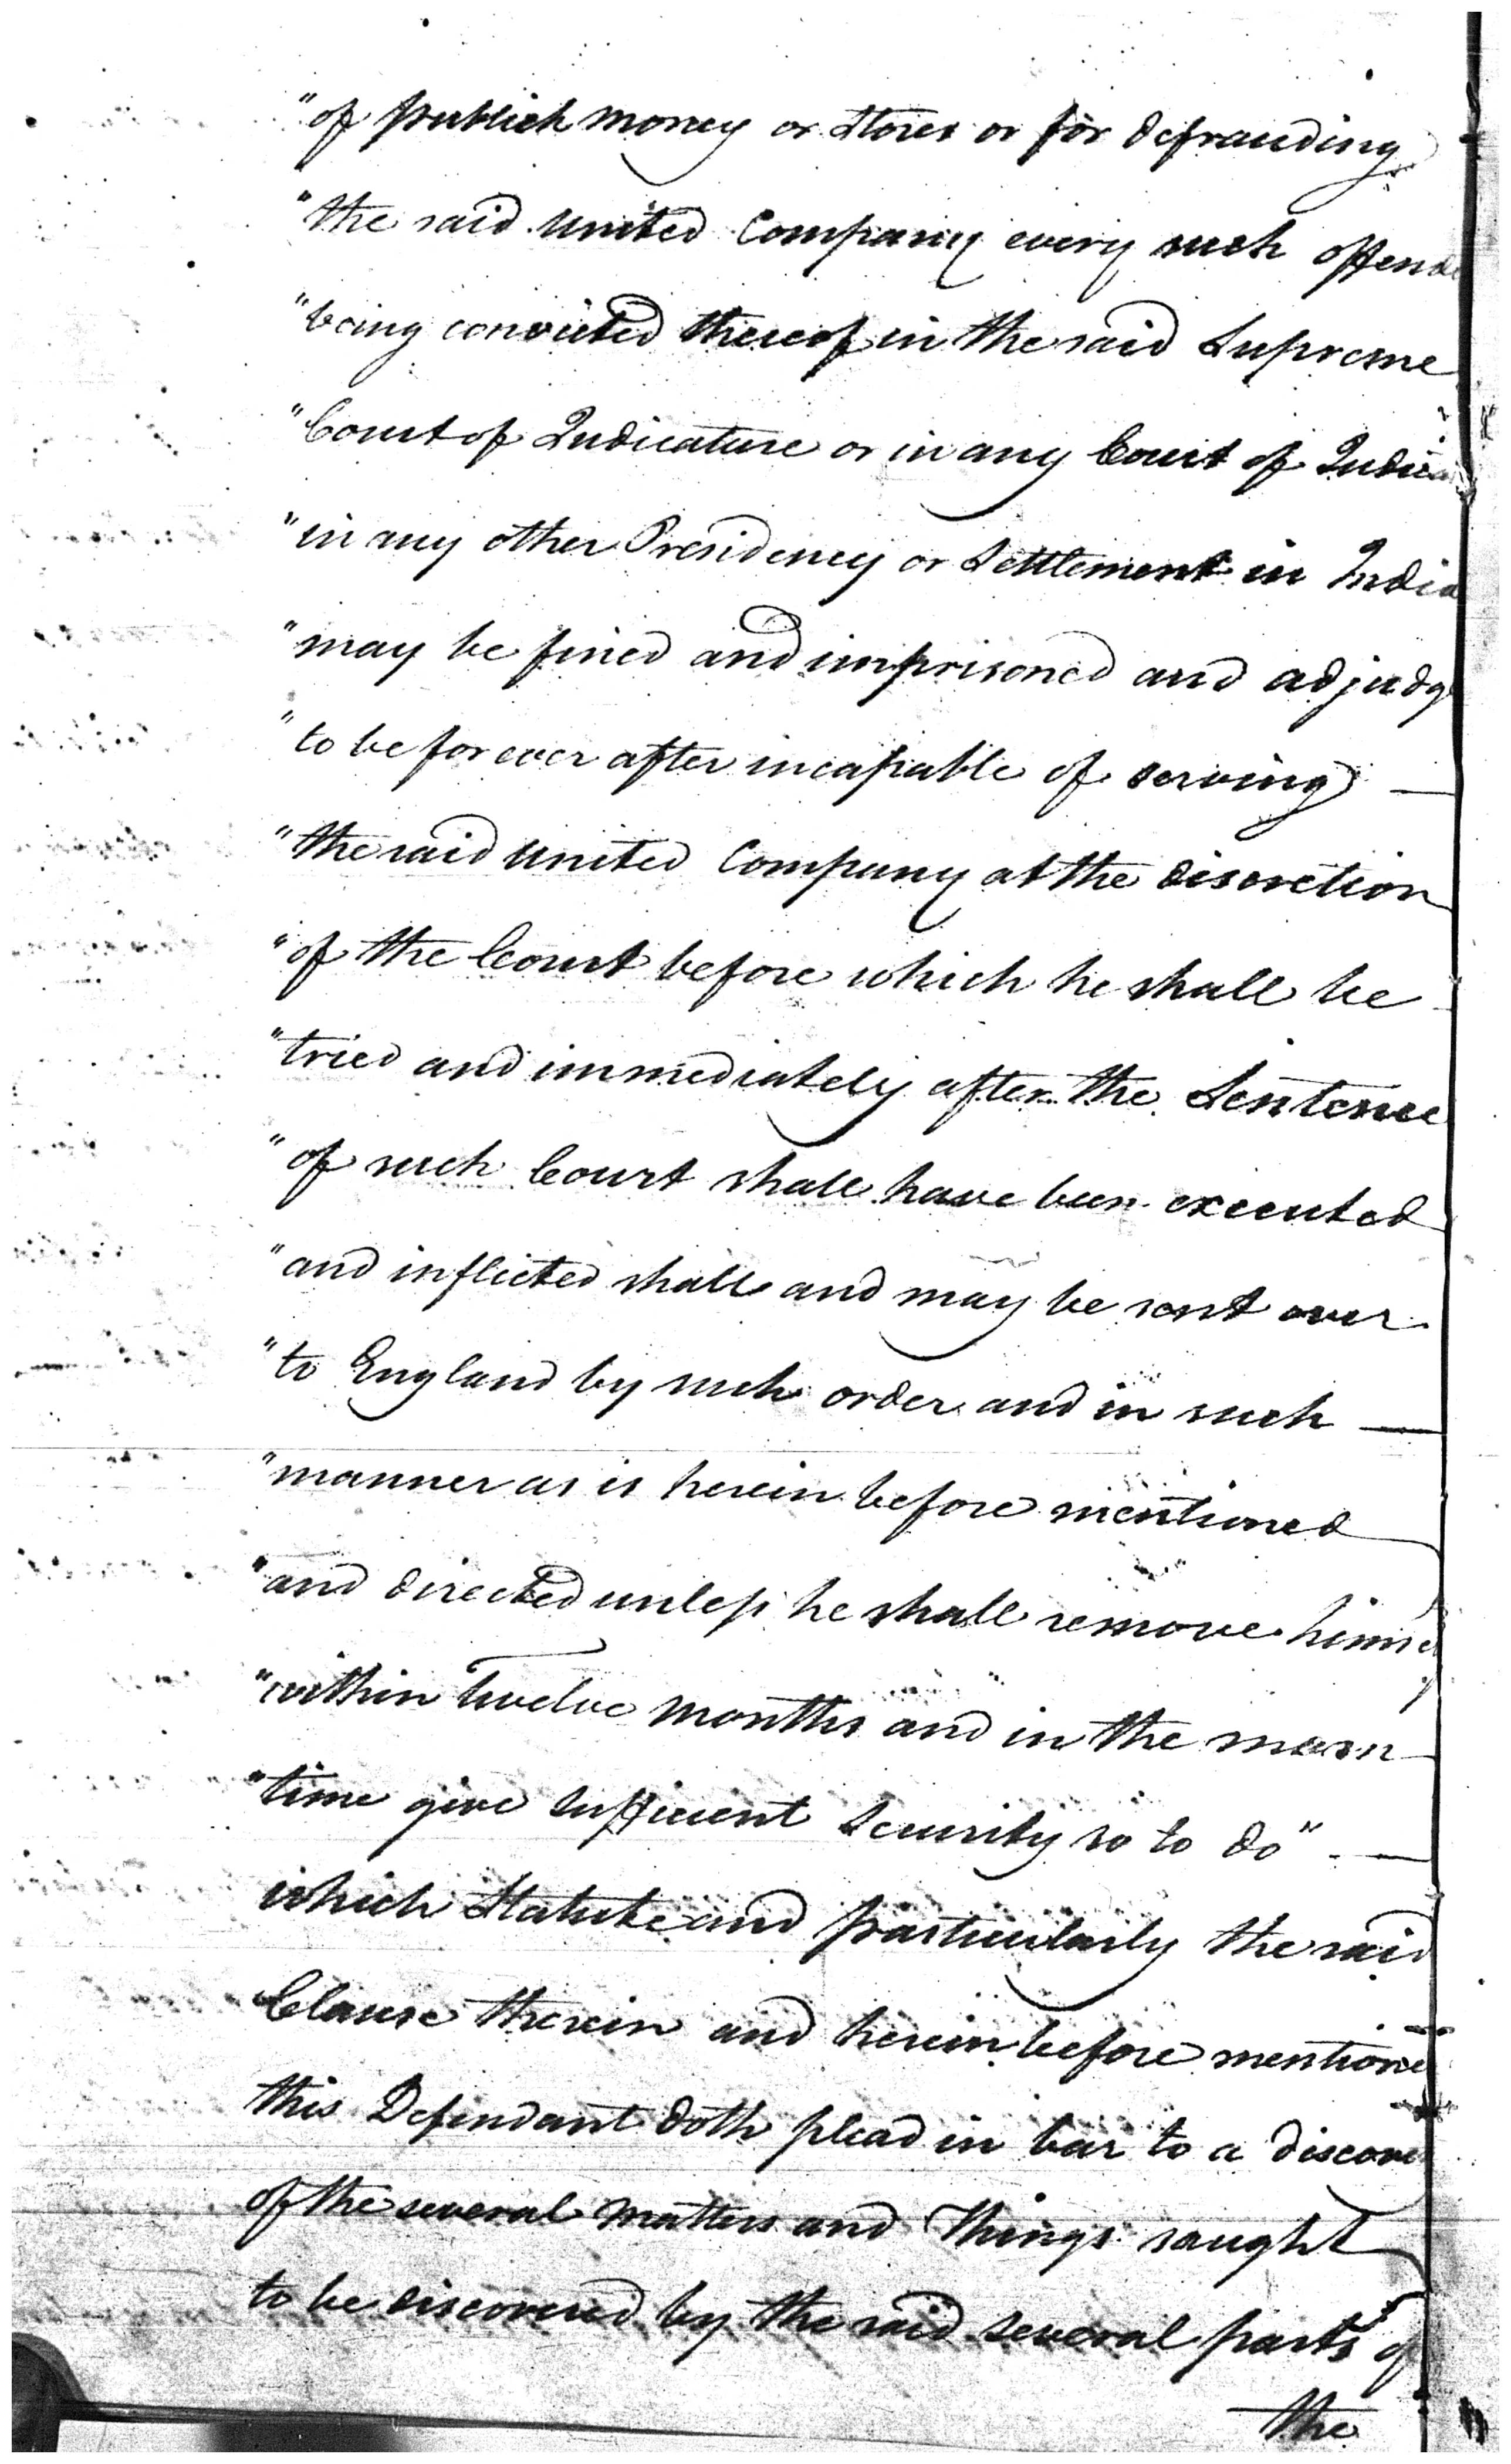 "of publick money or Stores or for defrauding
"the said United Company every such offende
"being convicted thereof in the said Supreme
"Court of Judicature or in any Court of Judica
"in any other Presidency or Settlement in India
"may be fined and imprisoned and adjudg
"to be for ever after incapable of serving —
"the said United Company at the discretion
"of the Court before which he shall be
"tried and immediately after the Sentence
"of such Court shall have been executed
"and inflicted shall and may be sent over
"to England by such order and in such —
"manner as is herein before mentioned
"and directed unless he shall remove himse
"within twelve months and in the mean
"time give sufficient Security so to do" —
which Statute and particularly the said
Clause therein and herein before mentione
this Defendant doth plead in bar to a discove
of the several matters and Things sought
to be discovered by the said several parts of
the